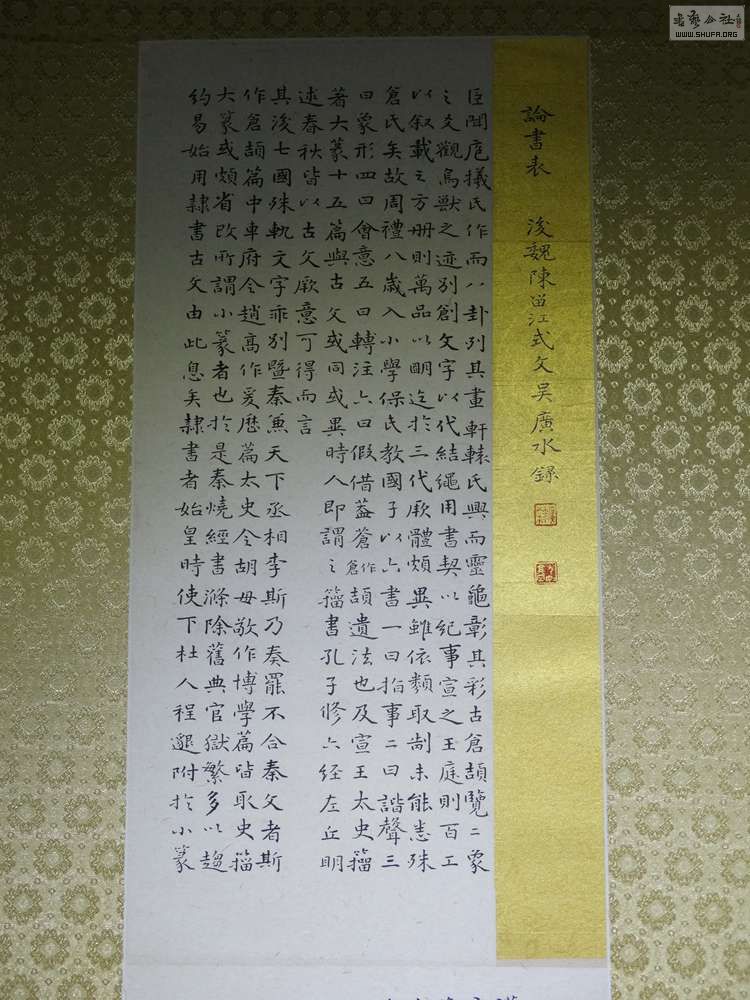 論書表 後魏陳留江式文 吳廣水錄
臣聞庖犧氏作而八卦列其畫軒轅氏興而靈龜彰其彩古倉頡覽二象
之文觀鳥獸之迹別創文字以代結繩用書契以紀事宣之王庭則百工
以叙載之方冊則萬品以明迄於三代厥體頗異雖依類取制未能悉殊
倉氏矣故周禮八歲入小學保氏教國子以六書一曰指事二曰諧聲三
曰象形四曰會意五曰轉注六曰假借蓋蒼作倉頡遺法也及宣王太史籀
著大篆十五篇與古文或同或異時人即謂之籀書孔子修六經左丘明
述春秋皆以古文厥意可得而言
其後七國殊軌文字乖別暨秦兼天下丞相李斯乃奏罷不合秦文者斯
作倉頡篇中車府令趙高作爰歷篇太史令胡毋敬作博學篇皆取史籀
大篆或頗省改所謂小篆者也於是秦燒經書滌除舊典官獄繁多以趨
約易始用隸書古文由此息矣隸書者始皇時使下杜人程邈附於小篆
WWW.SHUFA.ORG